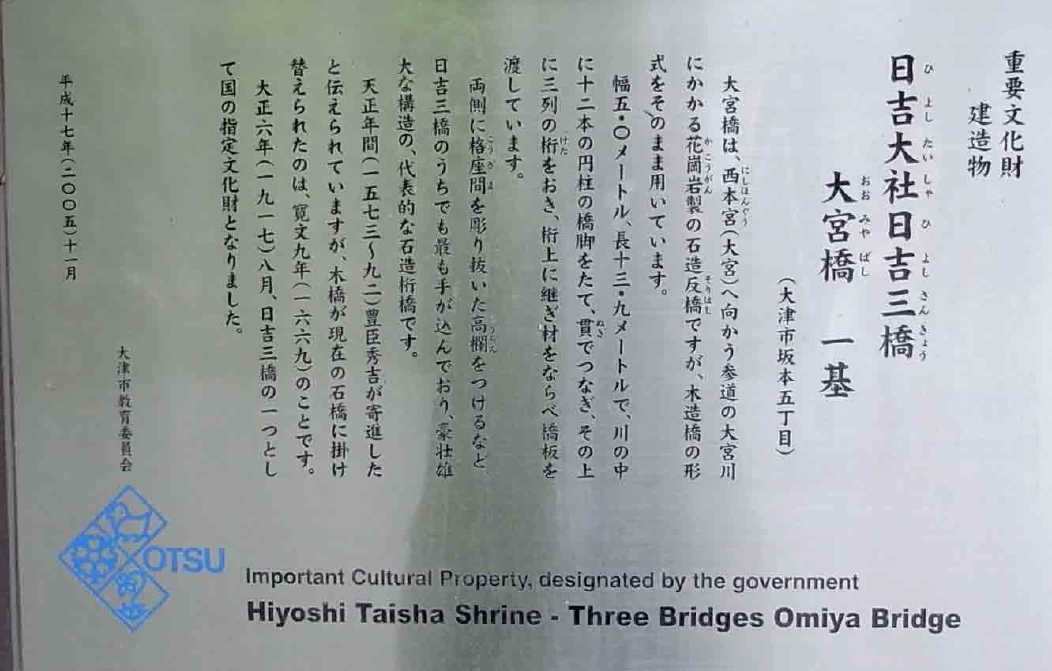 重要文化財
建造物
日吉大社日吉三橋
ひよしたいしゃひよしさんきょう
大宮橋 一基
おおみやばし
（大津市坂本五丁目）
大宮橋は、西本宮（大宮）へ向かう参道の大宮川
にしほんぐう
にかかる花崗岩製の石造反橋ですが、木造橋の形
かこうがん
そりはし
式をそのまま用いています。
幅五・〇メートル、長十三・九メートルで、川の中
に十二本の円柱の橋脚をたて、貫でつなぎ、その上
ぬき
に三列の桁をおき、桁上に継ぎ材をならべ橋板を
けた
渡しています。
両側に格座間を彫り抜いた高欄をつけるなど
こうざま
こうらん
日吉三橋のうちでも最も手が込んでおり、豪壮雄
大な構造の、代表的な石造桁橋です。
天正年間（一五七三～九二）豊臣秀吉が寄進した
と伝えられていますが、木橋が現在の石橋に掛け
替えられたのは、寛文九年（一六六九）のことです。
大正六年（一九一七）八月、日吉三橋の一つとし
て国の指定文化財となりました。
平成十七年（二〇〇五）十一月
大津市教育委員会
OTSU
Important Cultural Property, designated by the government
Hiyoshi Taisha Shrine - Three Bridges Omiya Bridge